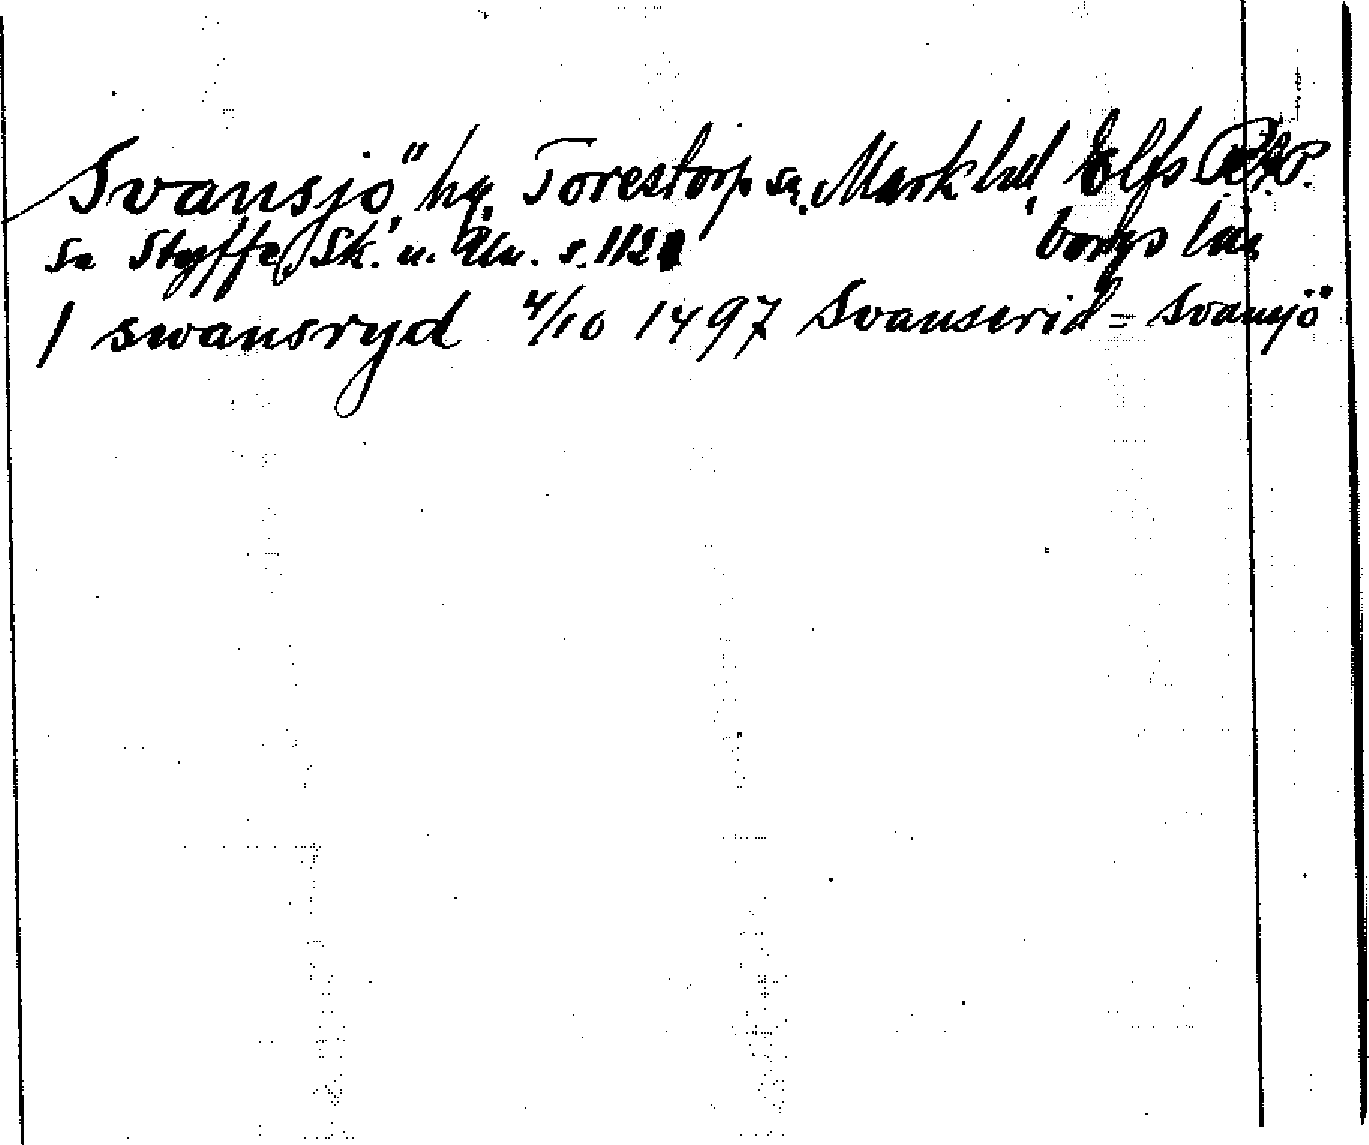 Svansjö, hg, Torestorp sn, Mark hd, Elfs
borgs län
Se Styffe, Sk. u. Un. s. 112
/ swansryd 4/10 1497 Svanserid = Svansjö